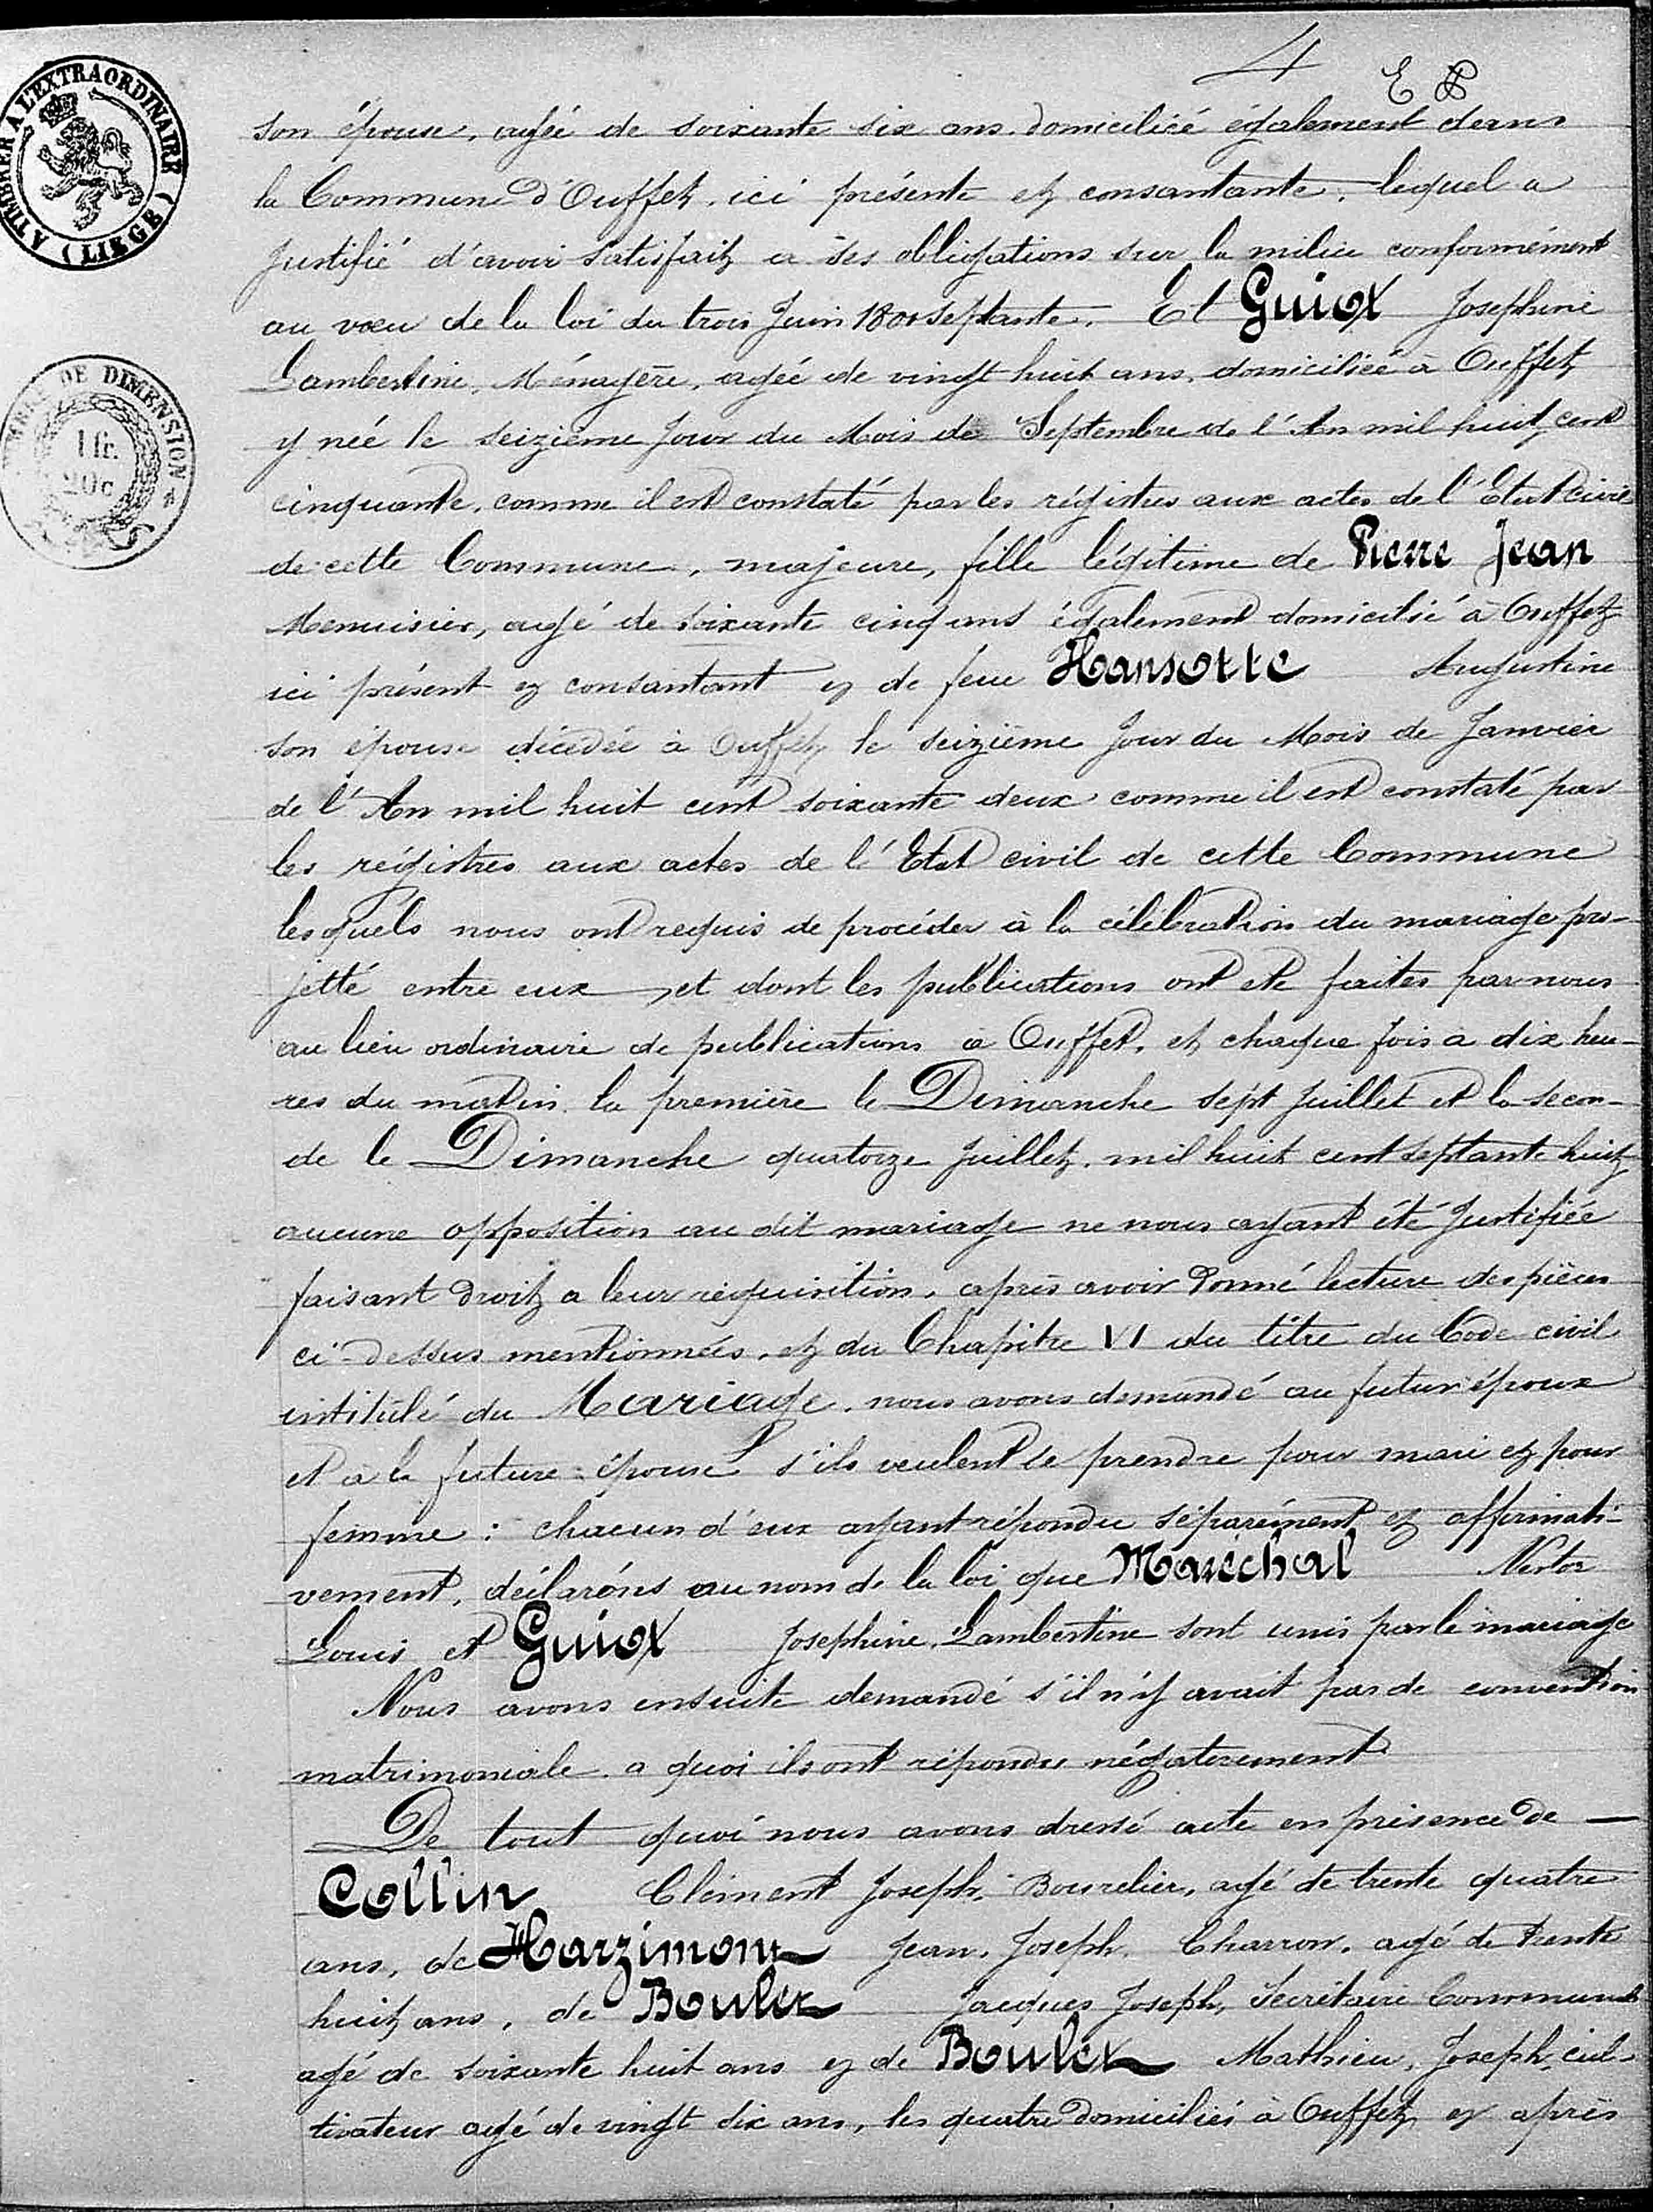 4 E B
A TIMBRER A L'EXTRAORDINAIRE (LIEGE)
TIMBRE DE DIMENSION
1 fr.
20c
son épouse, agée de soixante six ans domiciliée également dans
la Commune d'Ouffet, ici présente et consantante, lequel a
justifié d'avoir satisfait a ses obligations sur la milice conformément
au vœu de la loi du trois Juin 1800 septante. Et Guiot Josephine
Lambertine, Ménagère, agée de vingt huit ans, domiciliée à Ouffet
y née le seizième Jour du Mois de Septembre de l'An mil huit cent
cinquante, comme il est constaté par les régistres aux actes de l'Etat civil
de cette Commune, majeure, fille légitime de Pierre Jean
Menuisier, agé de soixante cinq ans également domicilié à Ouffet
ici présent et consantant et de feue Hansotte Augustine
son épouse décédée à Ouffet, le seizième Jour du Mois de Janvier
de l'An mil huit cent soixante deux comme il est constaté par
les régistres aux actes de l'Etat civil de cette Commune
lesquels nous ont requis de procéder à la célébration du mariage pro-
jetté entre eux, et dont les publications ont été faites par nous
au lieu ordinaire de publications à Ouffet, et chaque fois a dix heu-
res du matin la première le Dimanche sept Juillet et la secon-
de le Dimanche quatorze Juillet, mil huit cent septante huit
aucune opposition au dit mariage ne nous ayant été Justifiée
faisant droit a leur réquisition, après avoir donné lecture des pièces
ci-dessus mentionnées, et du Chapitre VI du titre du Code civil
intitulé du Mariage, nous avons demandé au futur époux
et à la future épouse s'ils veulent se prendre pour mari et pour
femme : chacun d'eux ayant répondu séparément et affirmati-
vement, déclarons au nom de la loi que Maréchal Nestor
Louis et Guiot Josephine Lambertine sont unis par le mariage
Nous avons ensuite demandé s'il n'y avait pas de convention
matrimoniale a quoi ils ont répondu négativement
De tout quoi nous avons dressé acte en présence de —
Collin Clément Joseph, Bourelier, agé de trente quatre
ans, de Harzimont Jean Joseph, Charron, agé de trente
huit ans, de Boulet Jacques Joseph, Secrétaire Communal
agé de soixante huit ans et de Boulet Mathieu, Joseph, cul-
tivateur agé de vingt six ans, les quatre domiciliés à Ouffet, et après